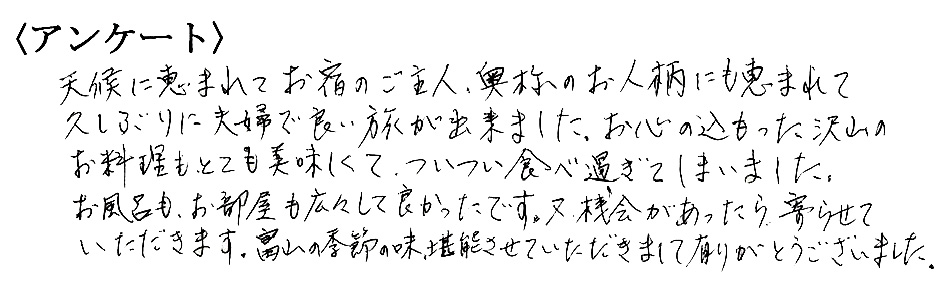 〈アンケート〉
天候に恵まれてお宿のご主人、奥様のお人柄にも恵まれて
久しぶりに夫婦で良い旅が出来ました。お心の込もった沢山の
お料理もとても美味しくて、ついつい食べ過ぎてしまいました。
お風呂も、お部屋も広々して良かったです。又機会があったら寄らせて
いただきます。富山の季節の味、堪能させていただきまして有りがとうございました。